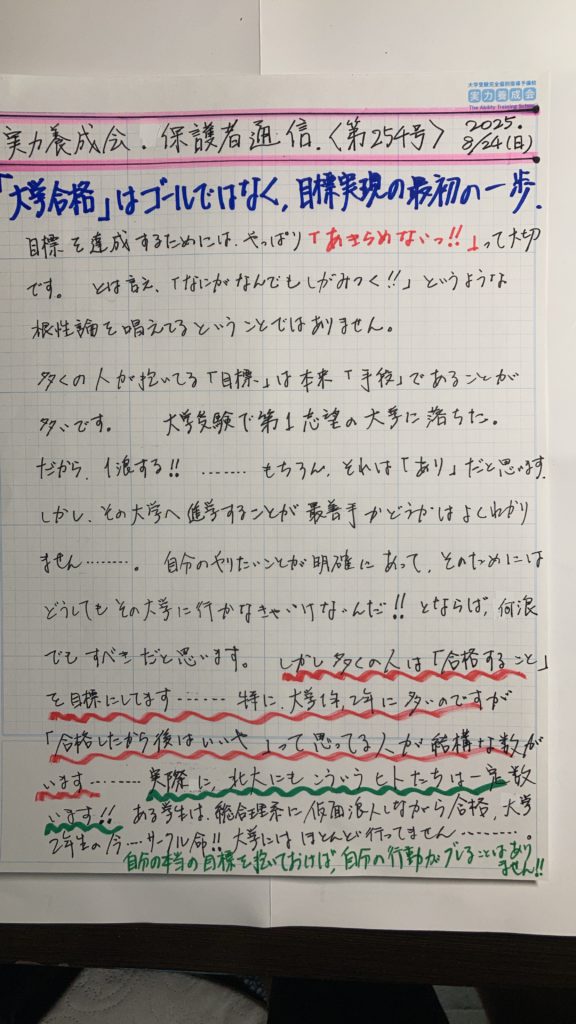 大学受験完全個別指導予備校
実力養成会
The Ability Training School
実力養成会・保護者通信.〈第254号〉 2025. 8/24(日)
「大学合格」はゴールではなく,目標実現の最初の一歩.
目標を達成するためには、やっぱり「あきらめないっ!!」って大切
です。 とは言え、「なにがなんでもしがみつく!!」というような
根性論を唱えてるということではありません。
多くの人が抱いてる「目標」は本来「手段」であることが
多いです。 大学受験で第1志望の大学に落ちた。
だから、1浪する!! ……… もちろん、それは「あり」だと思います.
しかし、その大学へ進学することが最善手かどうかはよくわかり
ません………。 自分のやりたいことが明確にあって、そのためには
どうしてもその大学に行かなきゃいけないんだ!! とならば、何浪
でもすべきだと思います。 しかし多くの人は「合格すること」
を目標にしてます……… 特に、大学1年,2年に多いのですが
「合格したから後はいいや」って思ってる人が結構な数が
います……… 実際に、北大にもこういうヒトたちは一定数
います!! ある学生は、総合理系に仮面浪人しながら合格,大学
2年生の今…サークル命!! 大学にはほとんど行ってません………。
自分の本当の目標を抱いておけば,自分の行動がブレることはあり
ません!!